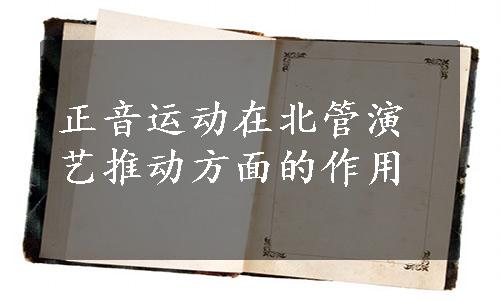 正音运动在北管演
艺推动方面的作用